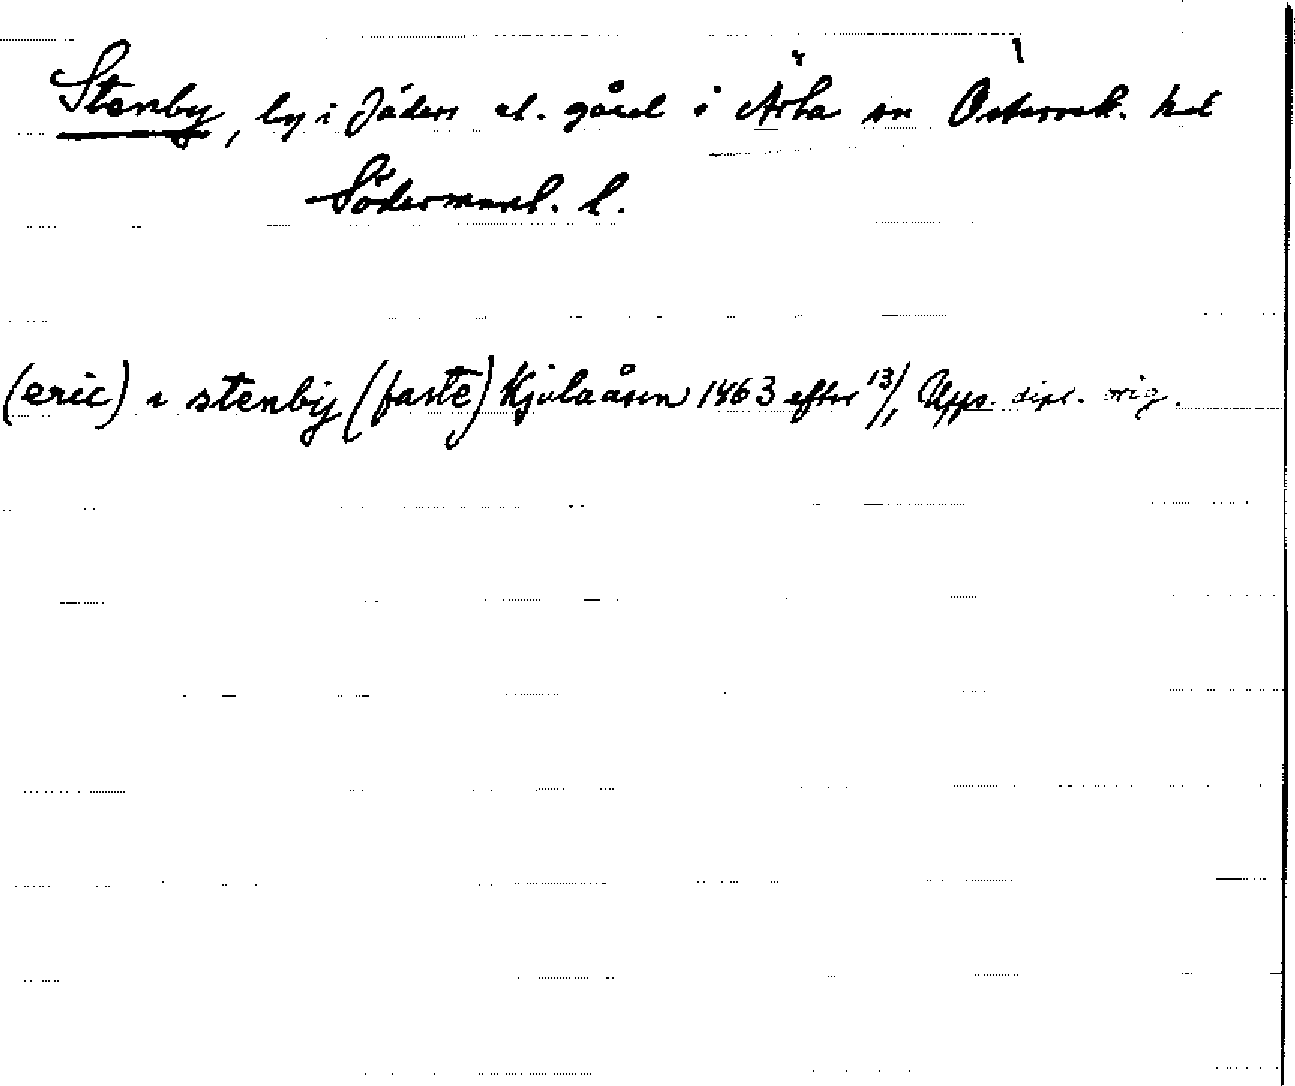 Stenby, by i Jäders el. gård i Ärla sn Österrek. hd
Södermanl. l.
(eric) i stenbij (faste) Kjulaåsen 1463 efter 13/1 Upps. dipl. orig.